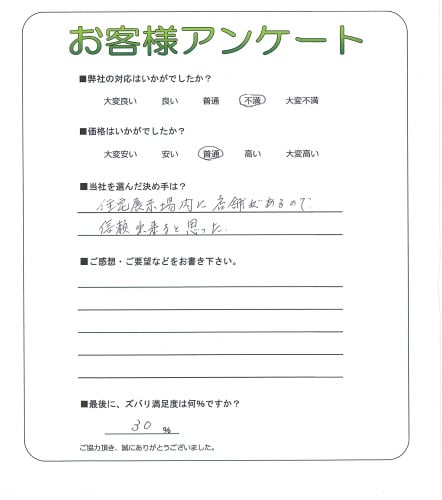 お客様アンケート
■弊社の対応はいかがでしたか？
大変良い 良い 普通 不満 大変不満
■価格はいかがでしたか？
大変安い 安い 普通 高い 大変高い
■当社を選んだ決め手は？
住宅展示場内に店舗があるので
信頼出来ると思った.
■ご感想・ご要望などをお書き下さい。
■最後に、ズバリ満足度は何％ですか？
30 ％
ご協力頂き、誠にありがとうございました。